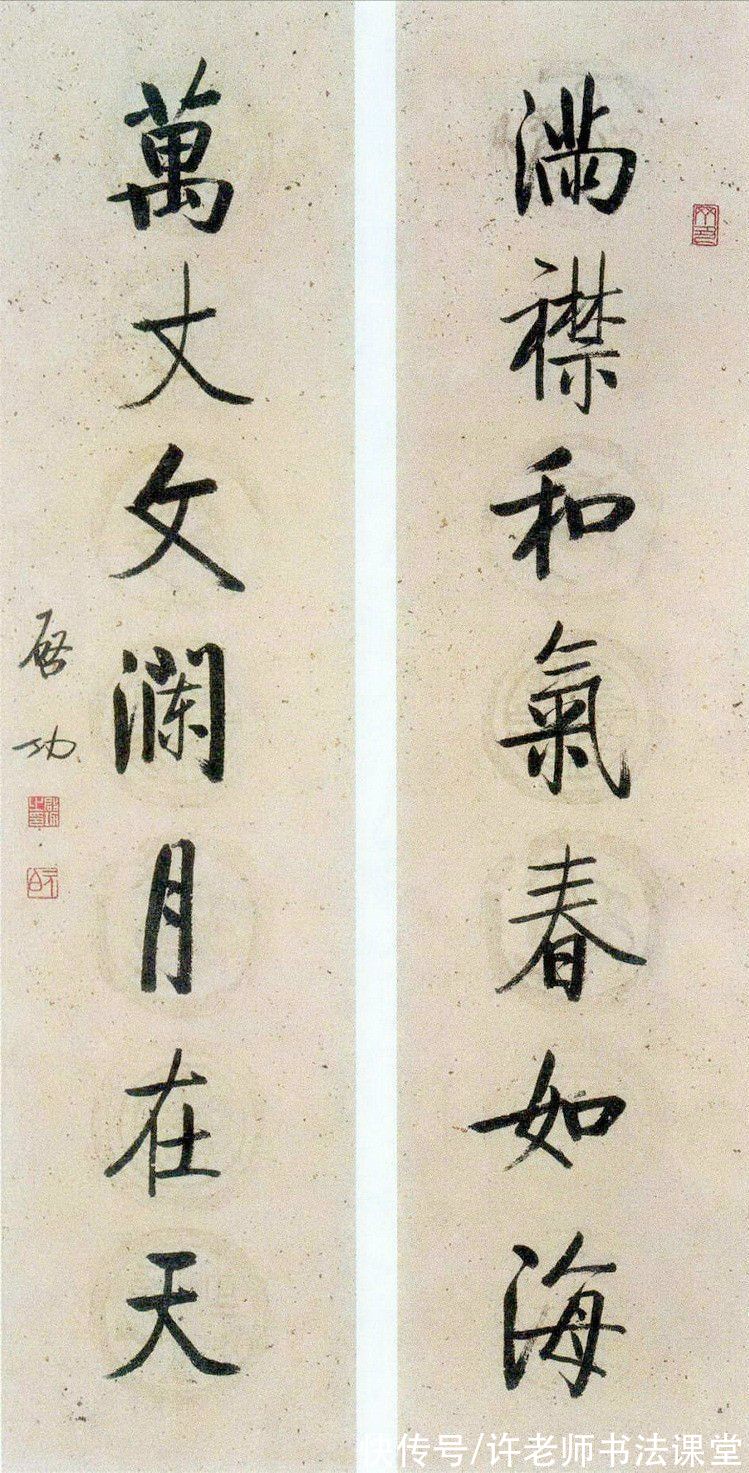 满襟和氣春如海
萬丈文瀾月在天
启功
快传号/许老师书法课堂